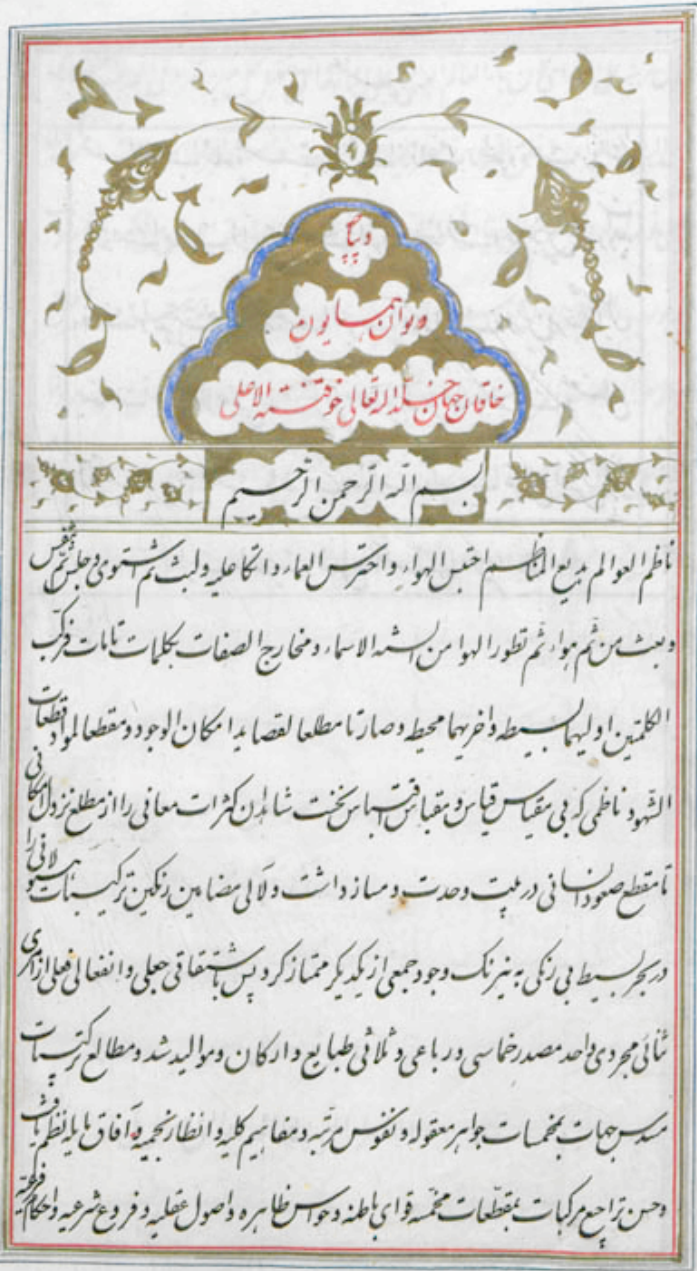 دیباچه
دیوان همایون
خاقان جهان خلد الله تعالی خوقته الاعلی
بسم الله الرحمن الرحیم
ناظم العوالم بدیع المناظم احتبس الهواء واحترس العماء واتکا علیه ولبث ثم استوی وجلس ثم تنفس
وبعث من ثم هواء ثم تطور الهوا من السنه الاسماء ومخارج الصفات بکلمات تامات فرکب
الکلمتین اولیهما بسیطه واخریهما محیطه وصارتا مطلعا لقصاید امکان الوجود ومقطعا لمواد قطعات
الشهود ناظمی که بی مقیاس قیاس ومقباس اقتباس نخست شاهدان کثرات معانی را از مطلع نزول امکانی
تا مقطع صعود انسانی در بیت وحدت دمساز داشت ولآلی مضامین رنکین ترکیبات هیولانی را
در بحر بسیط بی رنکی به نیرنک وجود جمعی از یکدیکر ممتاز کرد پس باشتقاقی جعلی وانفعالی فعلی از
ثنائی مجردی واحد مصدر خماسی ورباعی وثلاثی طبایع وارکان وموالید شد ومطالع ترکیبات
مسدس جهات بمخمسات جواهر معقوله ونفوس مرتبه ومفاهیم کلیه وانظار نجمیه وآفاق نظم یافت
وحسن تراجیع مرکبات بمقطعات مخمسه قوای باطنه وحواس ظاهره واصول عقلیه وفروع شرعیه واحکام فرعیه